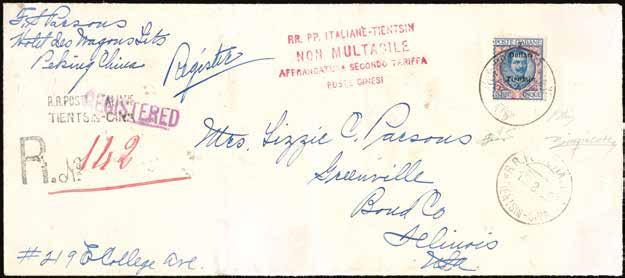 F. S. Parsons
Hotel des Wagons Lits
Peking China
Register
RR. PP. ITALIANE-TIENTSIN
NON MULTABILE
AFFRANCATURA SECONDO TARIFFA
POSTE CINESI
POSTE ITALIANE
Tientsin
R.R. POSTE
TIENTSIN-CINA
REGISTERED
R. No
142
Mrs. Lizzie C. Parsons
Greenville
Bond Co
Illinois
USA
TIENTSIN-CINA
#219 E College Ave.